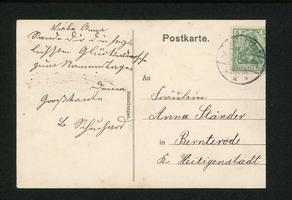 Liebe Anna
Sende dir die herz
lichsten Glückwünsche
zum Namenstage
Deine
Großtante
Schuchard
Postkarte.
An
Fräulein
Anna Ständer
in Bernterode
Kr. Heiligenstadt